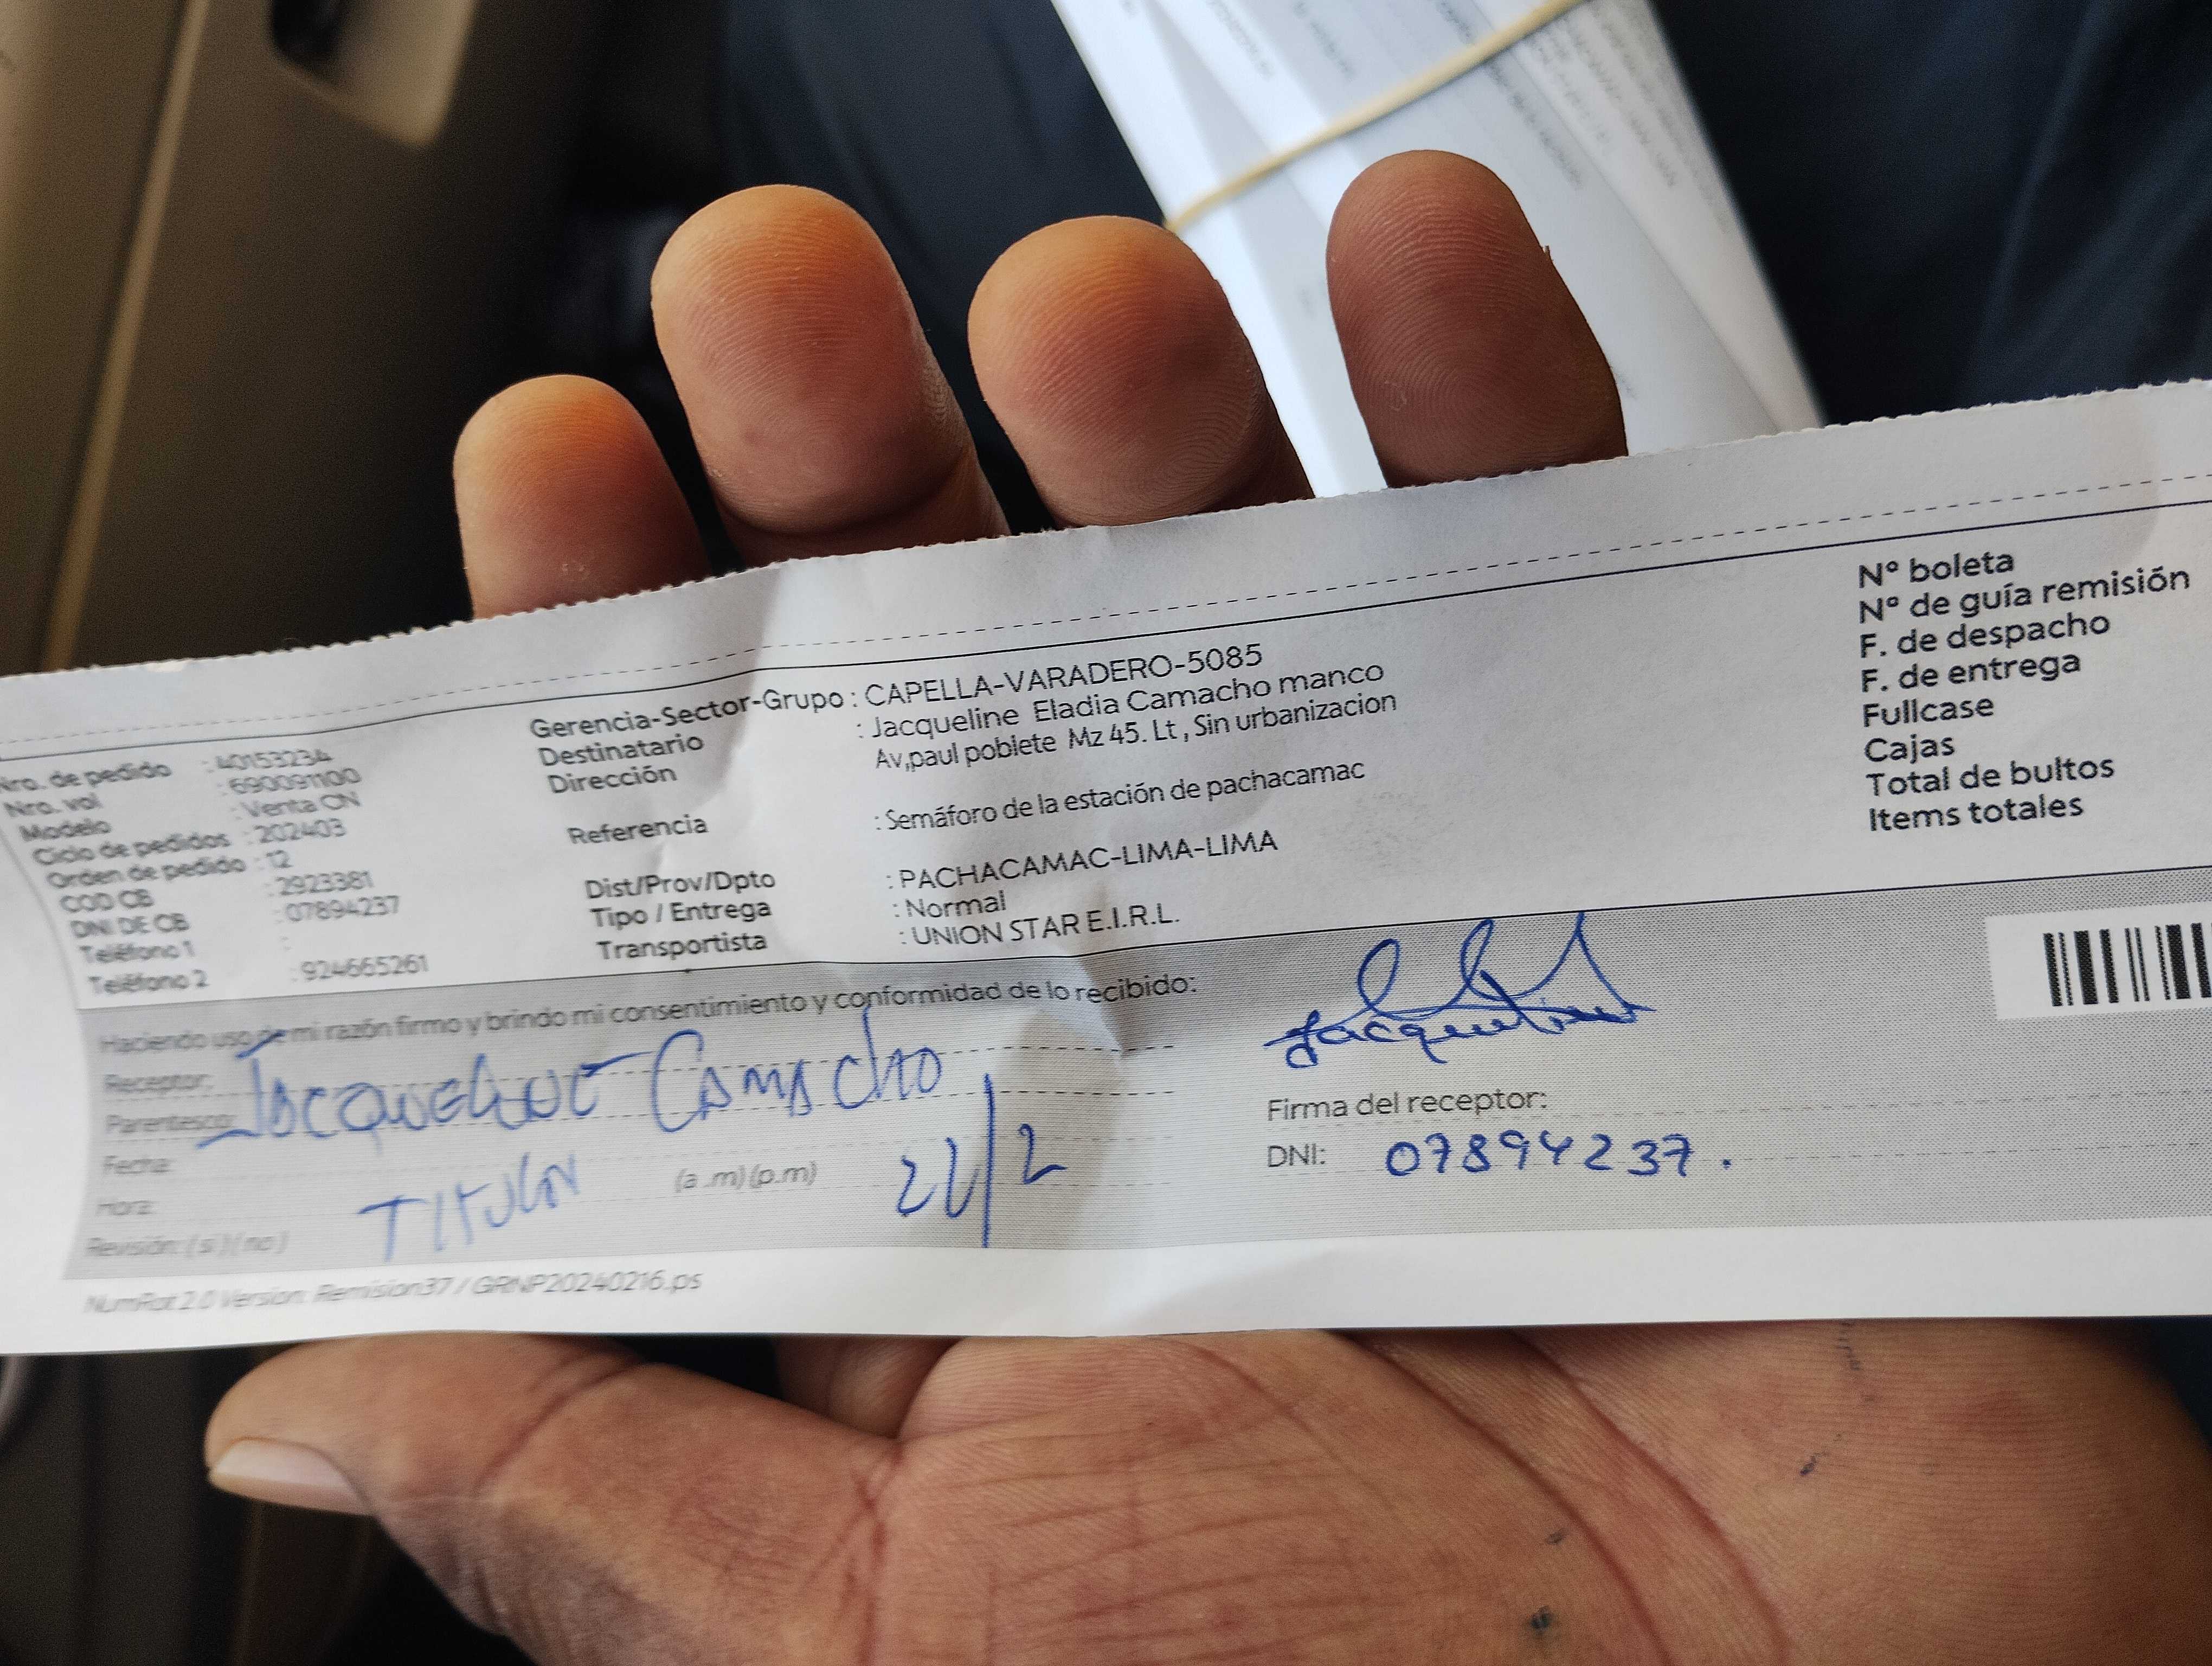 Nro. de pedido : 40153234
Nro. vol : 690091100
Modelo : Venta CN
Ciclo de pedidos : 202403
Orden de pedido : 12
COD CB : 2923381
DNI DE CB : 07894237
Teléfono 1 :
Teléfono 2 : 924665261
Gerencia-Sector-Grupo : CAPELLA-VARADERO-5085
Destinatario : Jacqueline Eladia Camacho manco
Dirección Av,paul poblete Mz 45. Lt , Sin urbanizacion
Referencia : Semáforo de la estación de pachacamac
Dist/Prov/Dpto : PACHACAMAC-LIMA-LIMA
Tipo / Entrega : Normal
Transportista : UNION STAR E.I.R.L.
Nº boleta
Nº de guía remisión
F. de despacho
F. de entrega
Fullcase
Cajas
Total de bultos
Items totales
Haciendo uso de mi razón firmo y brindo mi consentimiento y conformidad de lo recibido:
Receptor: Jacqueline Camacho
Parentesco:
Fecha:
Hora: (a .m) (p.m)
TITULAR
Revisión: ( si ) ( no )
Jacqueline
Firma del receptor:
DNI: 07894237.
NumRot 2.0 Version: Remision37 / GRNP20240216.ps